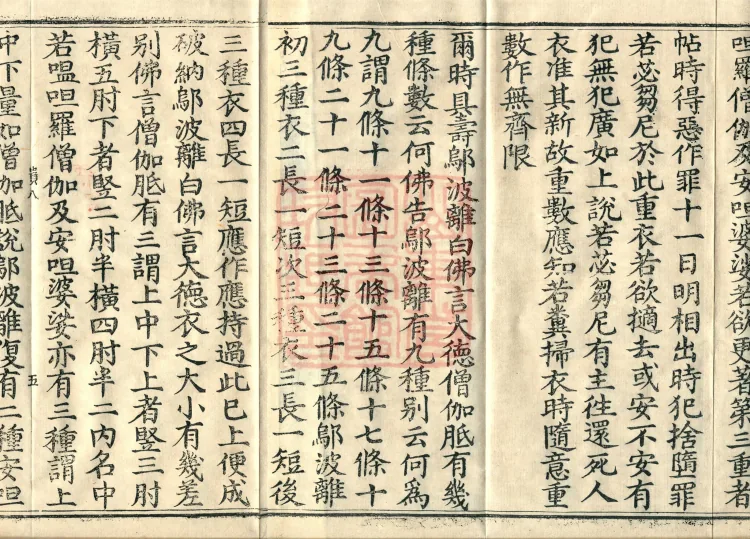 呾羅僧伽及安呾婆娑若欲更著第三重者
帖時得惡作罪十一日明相出時犯捨墮罪
若苾芻尼於此重衣若欲擿去或安不安有
犯無犯廣如上說若苾芻尼有主往還死人
衣准其新故重數應知若糞掃衣時隨意重
數作無齊限
爾時具壽鄔波離白佛言大德僧伽胝有幾
種條數云何佛告鄔波離有九種別云何爲
九謂九條十一條十三條十五條十七條十
九條二十一條二十三條二十五條鄔波離
初三種衣二長一短次三種衣三長一短後
三種衣四長一短應作應持過此已上便成
破納鄔波離白佛言大德衣之大小有幾差
別佛言僧伽胝有三謂上中下上者豎三肘
橫五肘下者豎二肘半橫四肘半二內名中
若嗢呾羅僧伽及安呾婆娑亦有三種謂上
五
中下量如僧伽胝說鄔波離復有二種安呾